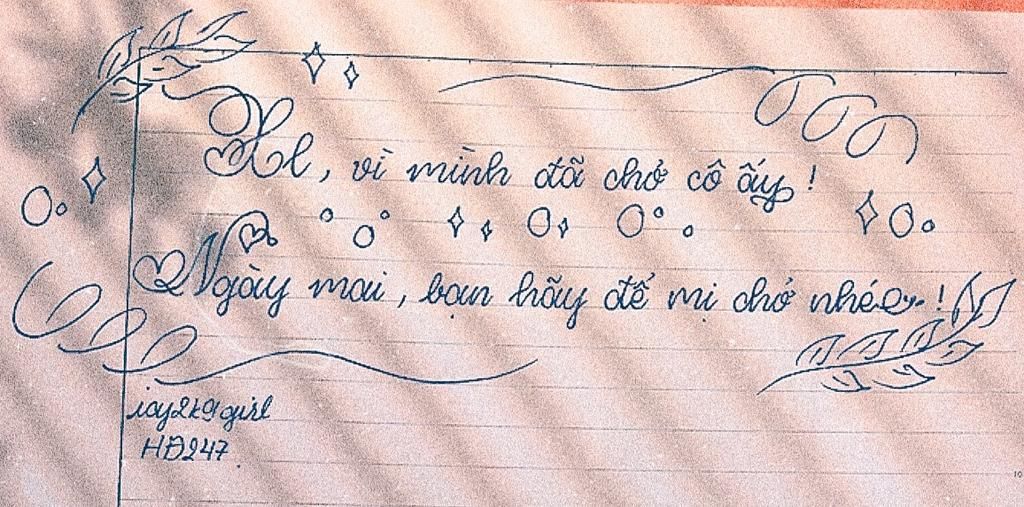 Xl, vì mình đã chở cô ấy!
Ngày mai, bạn hãy để mị chở nhé!
icy2k9girl
HĐ247
10